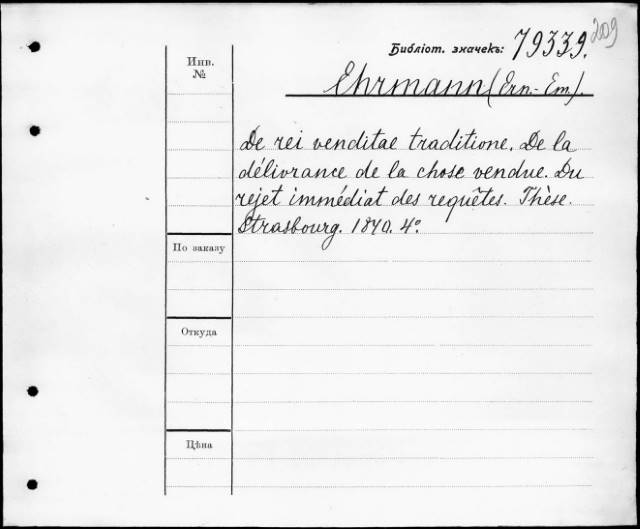 209
Бібліот. значекъ: 79339.
Инв.
№
Ehrmann (Ern.-Em.).
De rei venditae traditione. De la
délivrance de la chose vendue. Du
rejet immédiat des requêtes. Thèse.
Strasbourg. 1870. 4°.
По заказу
Откуда
Цѣна